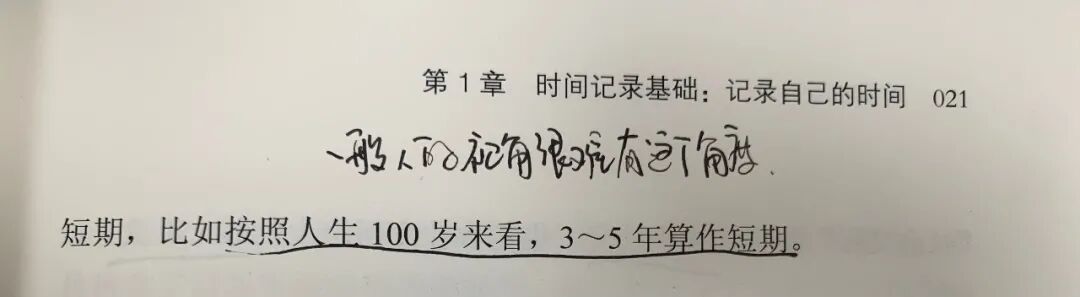 第1章 时间记录基础：记录自己的时间 021
一般人的视角很难有这个角度.
短期，比如按照人生 100 岁来看，3～5 年算作短期。